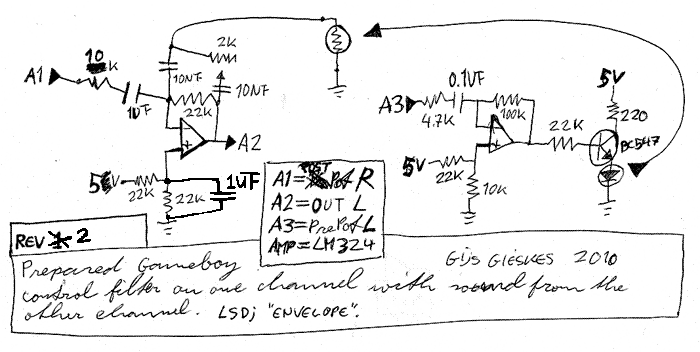 2K
10K
10NF
10NF
A1
1UF
22K
A2
22K
22K
1UF
0.1UF
A3
4.7K
100K
5V
220
22K
BC547
5V
22K
10K
A1=POST Pot R
A2=OUT L
A3=PrePot L
AMP=LM324
REV 2
Prepared Gameboy
Gijs Gieskes 2010
control filter on one channel with sound from the
other channel. LSDj "ENVELOPE".